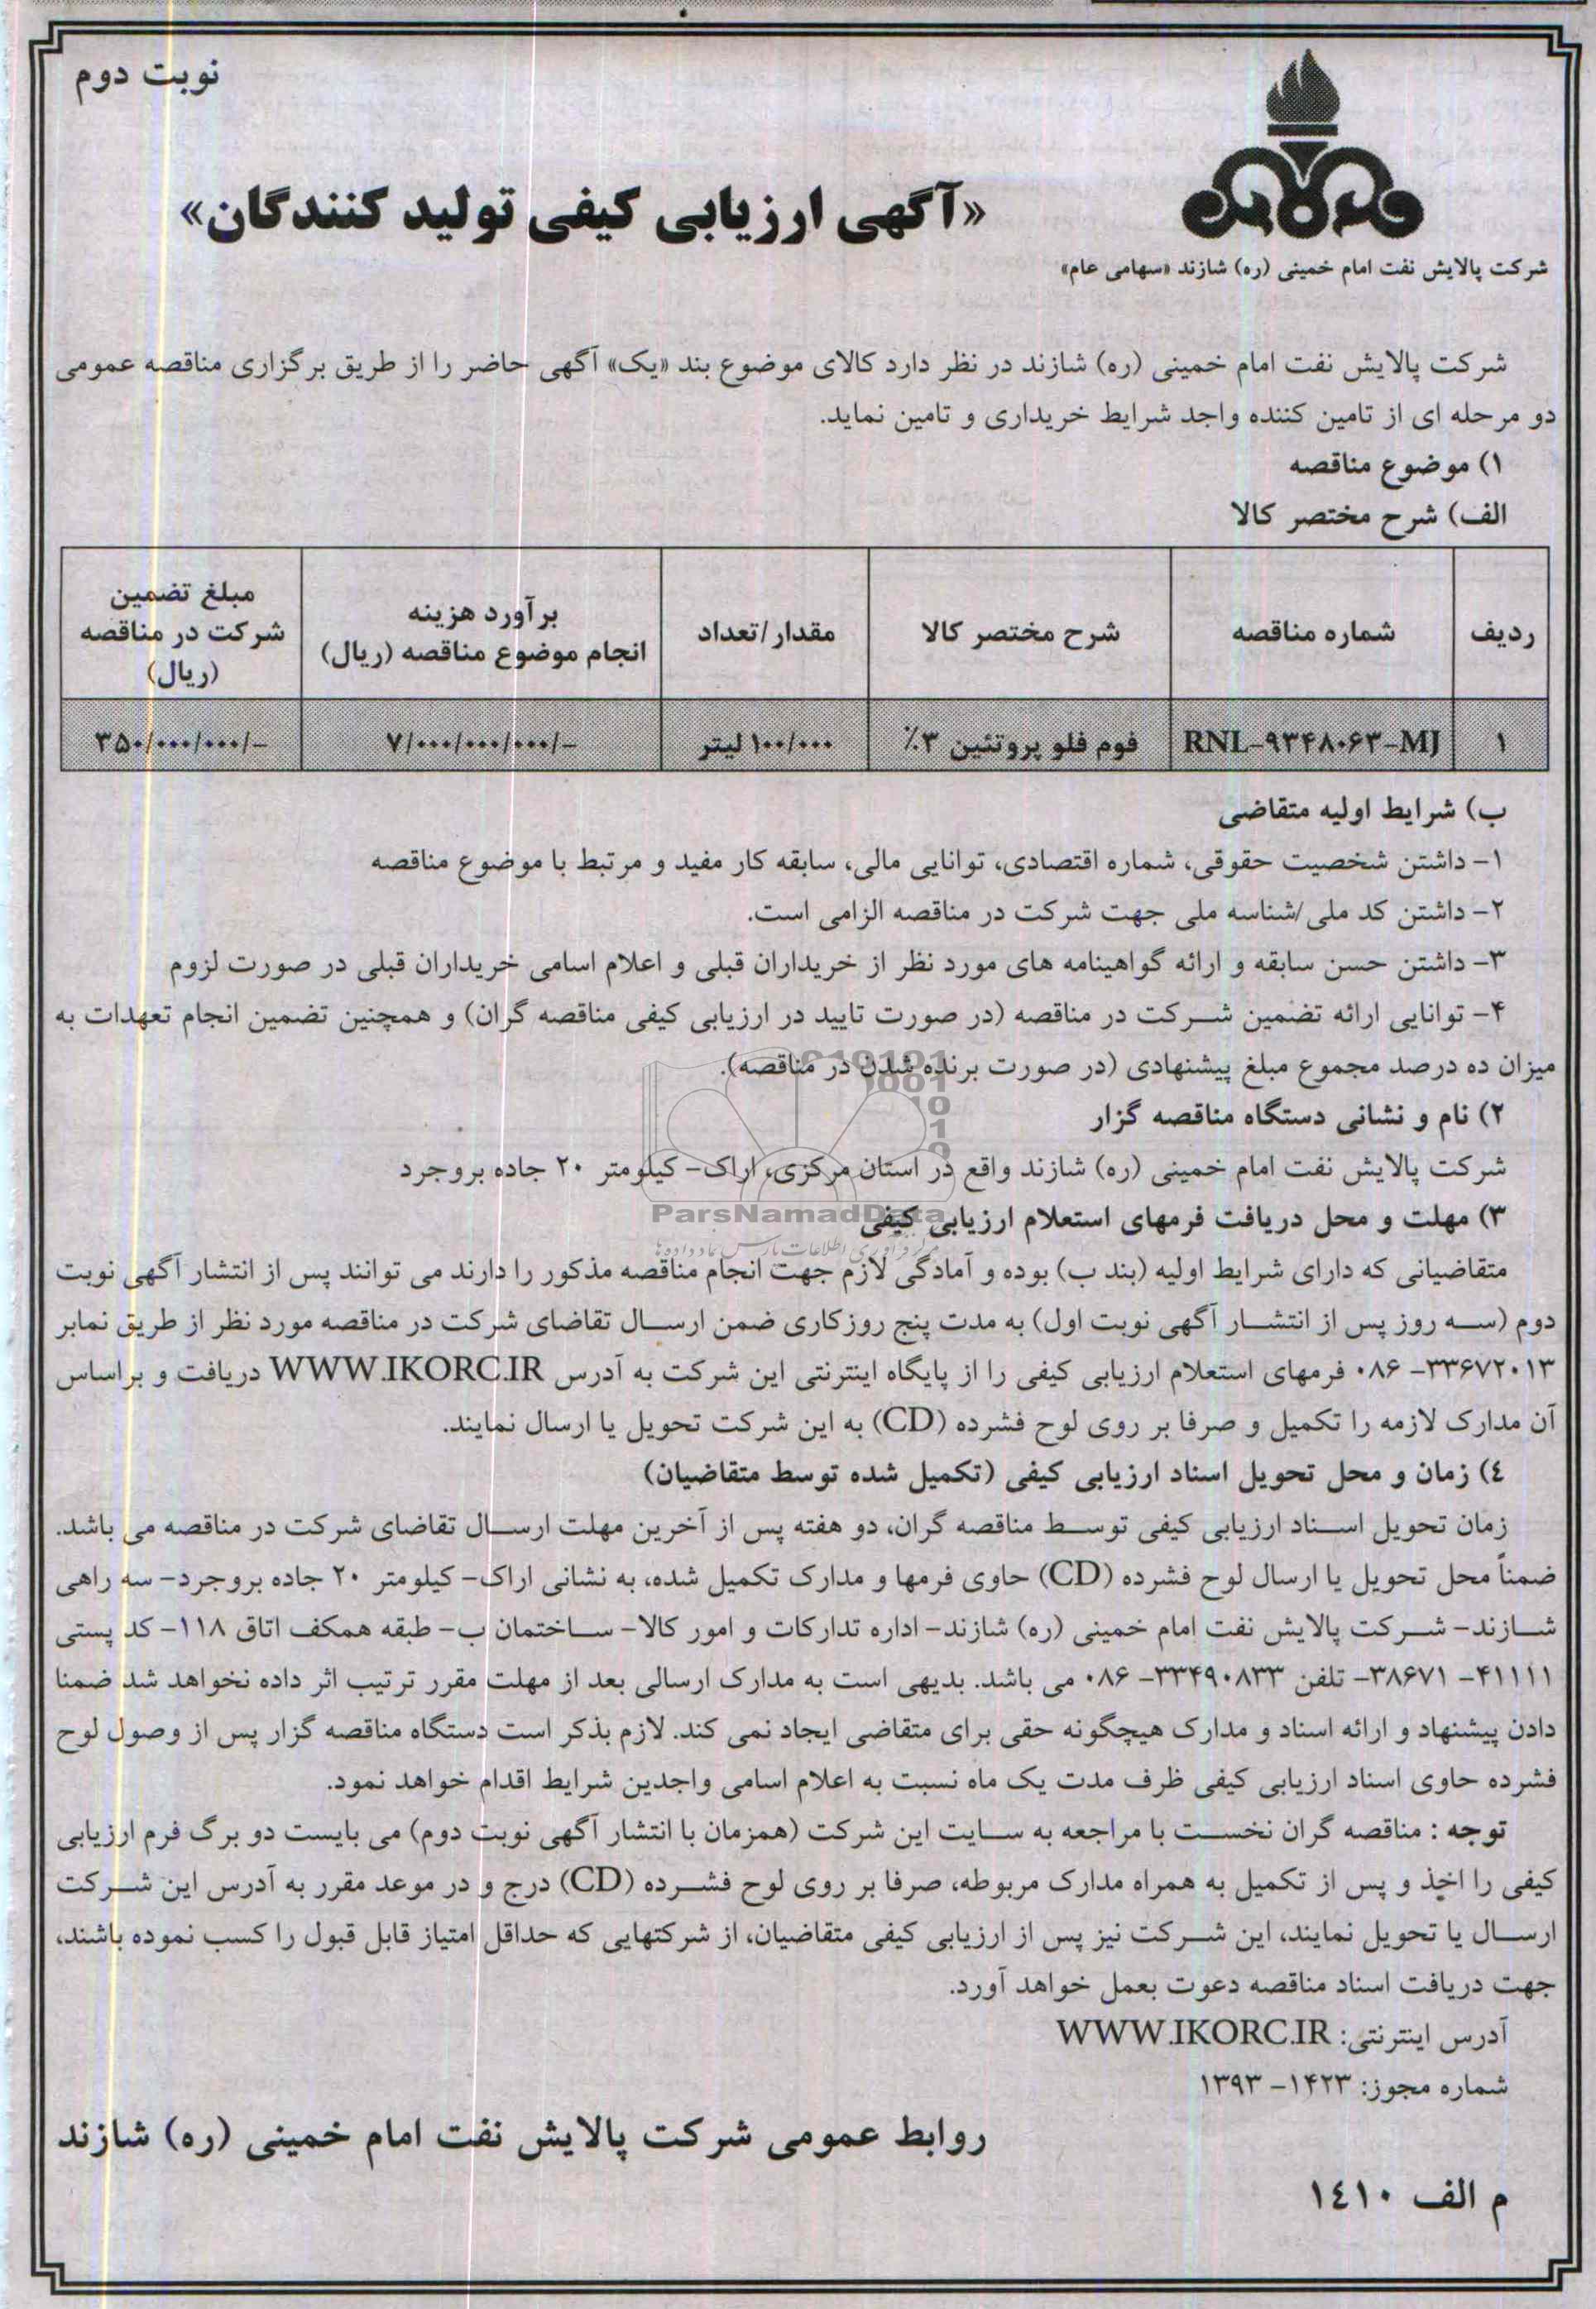 نوبت دوم
«آگهی ارزیابی کیفی تولید کنندگان»
شرکت پالایش نفت امام خمینی (ره) شازند «سهامی عام»
شرکت پالایش نفت امام خمینی (ره) شازند در نظر دارد کالای موضوع بند «یک» آگهی حاضر را از طریق برگزاری مناقصه عمومی
دو مرحله ای از تامین کننده واجد شرایط خریداری و تامین نماید.
۱) موضوع مناقصه
الف) شرح مختصر کالا
ردیف | شماره مناقصه | شرح مختصر کالا | مقدار/تعداد | برآورد هزینه انجام موضوع مناقصه (ریال) | مبلغ تضمین شرکت در مناقصه (ریال)
۱ | RNL-۹۳۴۸۰۶۳-MJ | فوم فلو پروتئین ۳٪ | ۱۰۰/۰۰۰ لیتر | ۷/۰۰۰/۰۰۰/۰۰۰/- | ۳۵۰/۰۰۰/۰۰۰/-
ب) شرایط اولیه متقاضی
۱- داشتن شخصیت حقوقی، شماره اقتصادی، توانایی مالی، سابقه کار مفید و مرتبط با موضوع مناقصه
۲- داشتن کد ملی/شناسه ملی جهت شرکت در مناقصه الزامی است.
۳- داشتن حسن سابقه و ارائه گواهینامه های مورد نظر از خریداران قبلی و اعلام اسامی خریداران قبلی در صورت لزوم
۴- توانایی ارائه تضمین شرکت در مناقصه (در صورت تایید در ارزیابی کیفی مناقصه گران) و همچنین تضمین انجام تعهدات به
میزان ده درصد مجموع مبلغ پیشنهادی (در صورت برنده شدن در مناقصه).
۲) نام و نشانی دستگاه مناقصه گزار
شرکت پالایش نفت امام خمینی (ره) شازند واقع در استان مرکزی، اراک- کیلومتر ۲۰ جاده بروجرد
ParsNamadData
۳) مهلت و محل دریافت فرمهای استعلام ارزیابی کیفی
متقاضیانی که دارای شرایط اولیه (بند ب) بوده و آمادگی لازم جهت انجام مناقصه مذکور را دارند می توانند پس از انتشار آگهی نوبت
دوم (سه روز پس از انتشار آگهی نوبت اول) به مدت پنج روزکاری ضمن ارسال تقاضای شرکت در مناقصه مورد نظر از طریق نمابر
۳۳۶۷۲۰۱۳- ۰۸۶ فرمهای استعلام ارزیابی کیفی را از پایگاه اینترنتی این شرکت به آدرس WWW.IKORC.IR دریافت و براساس
آن مدارک لازمه را تکمیل و صرفا بر روی لوح فشرده (CD) به این شرکت تحویل یا ارسال نمایند.
٤) زمان و محل تحویل اسناد ارزیابی کیفی (تکمیل شده توسط متقاضیان)
زمان تحویل اسناد ارزیابی کیفی توسط مناقصه گران، دو هفته پس از آخرین مهلت ارسال تقاضای شرکت در مناقصه می باشد.
ضمناً محل تحویل یا ارسال لوح فشرده (CD) حاوی فرمها و مدارک تکمیل شده، به نشانی اراک- کیلومتر ۲۰ جاده بروجرد- سه راهی
شازند- شرکت پالایش نفت امام خمینی (ره) شازند- اداره تدارکات و امور کالا- ساختمان ب- طبقه همکف اتاق ۱۱۸- کد پستی
۴۱۱۱۱- ۳۸۶۷۱- تلفن ۳۳۴۹۰۸۳۳- ۰۸۶ می باشد. بدیهی است به مدارک ارسالی بعد از مهلت مقرر ترتیب اثر داده نخواهد شد ضمنا
دادن پیشنهاد و ارائه اسناد و مدارک هیچگونه حقی برای متقاضی ایجاد نمی کند. لازم بذکر است دستگاه مناقصه گزار پس از وصول لوح
فشرده حاوی اسناد ارزیابی کیفی ظرف مدت یک ماه نسبت به اعلام اسامی واجدین شرایط اقدام خواهد نمود.
توجه : مناقصه گران نخست با مراجعه به سایت این شرکت (همزمان با انتشار آگهی نوبت دوم) می بایست دو برگ فرم ارزیابی
کیفی را اخذ و پس از تکمیل به همراه مدارک مربوطه، صرفا بر روی لوح فشرده (CD) درج و در موعد مقرر به آدرس این شرکت
ارسال یا تحویل نمایند، این شرکت نیز پس از ارزیابی کیفی متقاضیان، از شرکتهایی که حداقل امتیاز قابل قبول را کسب نموده باشند،
جهت دریافت اسناد مناقصه دعوت بعمل خواهد آورد.
آدرس اینترنتی: WWW.IKORC.IR
شماره مجوز: ۱۴۲۳- ۱۳۹۳
روابط عمومی شرکت پالایش نفت امام خمینی (ره) شازند
م الف ۱٤۱۰